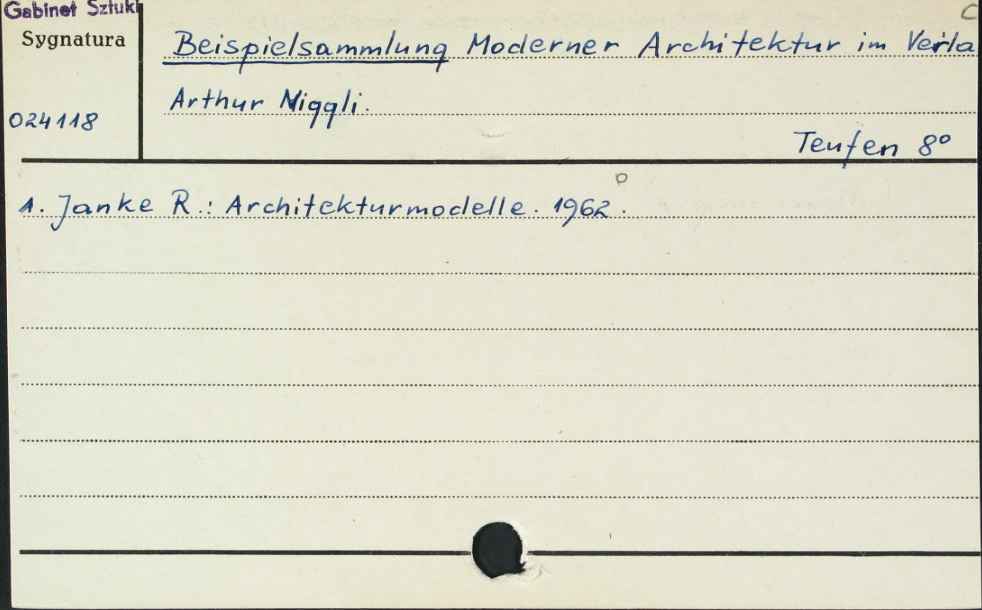 Gabinet Sztuki
Sygnatura
024118
Beispielsammlung Moderner Architektur im Verla
Arthur Niggli.
Teufen 8°
1. Janke R.: Architekturmodelle. 1962.